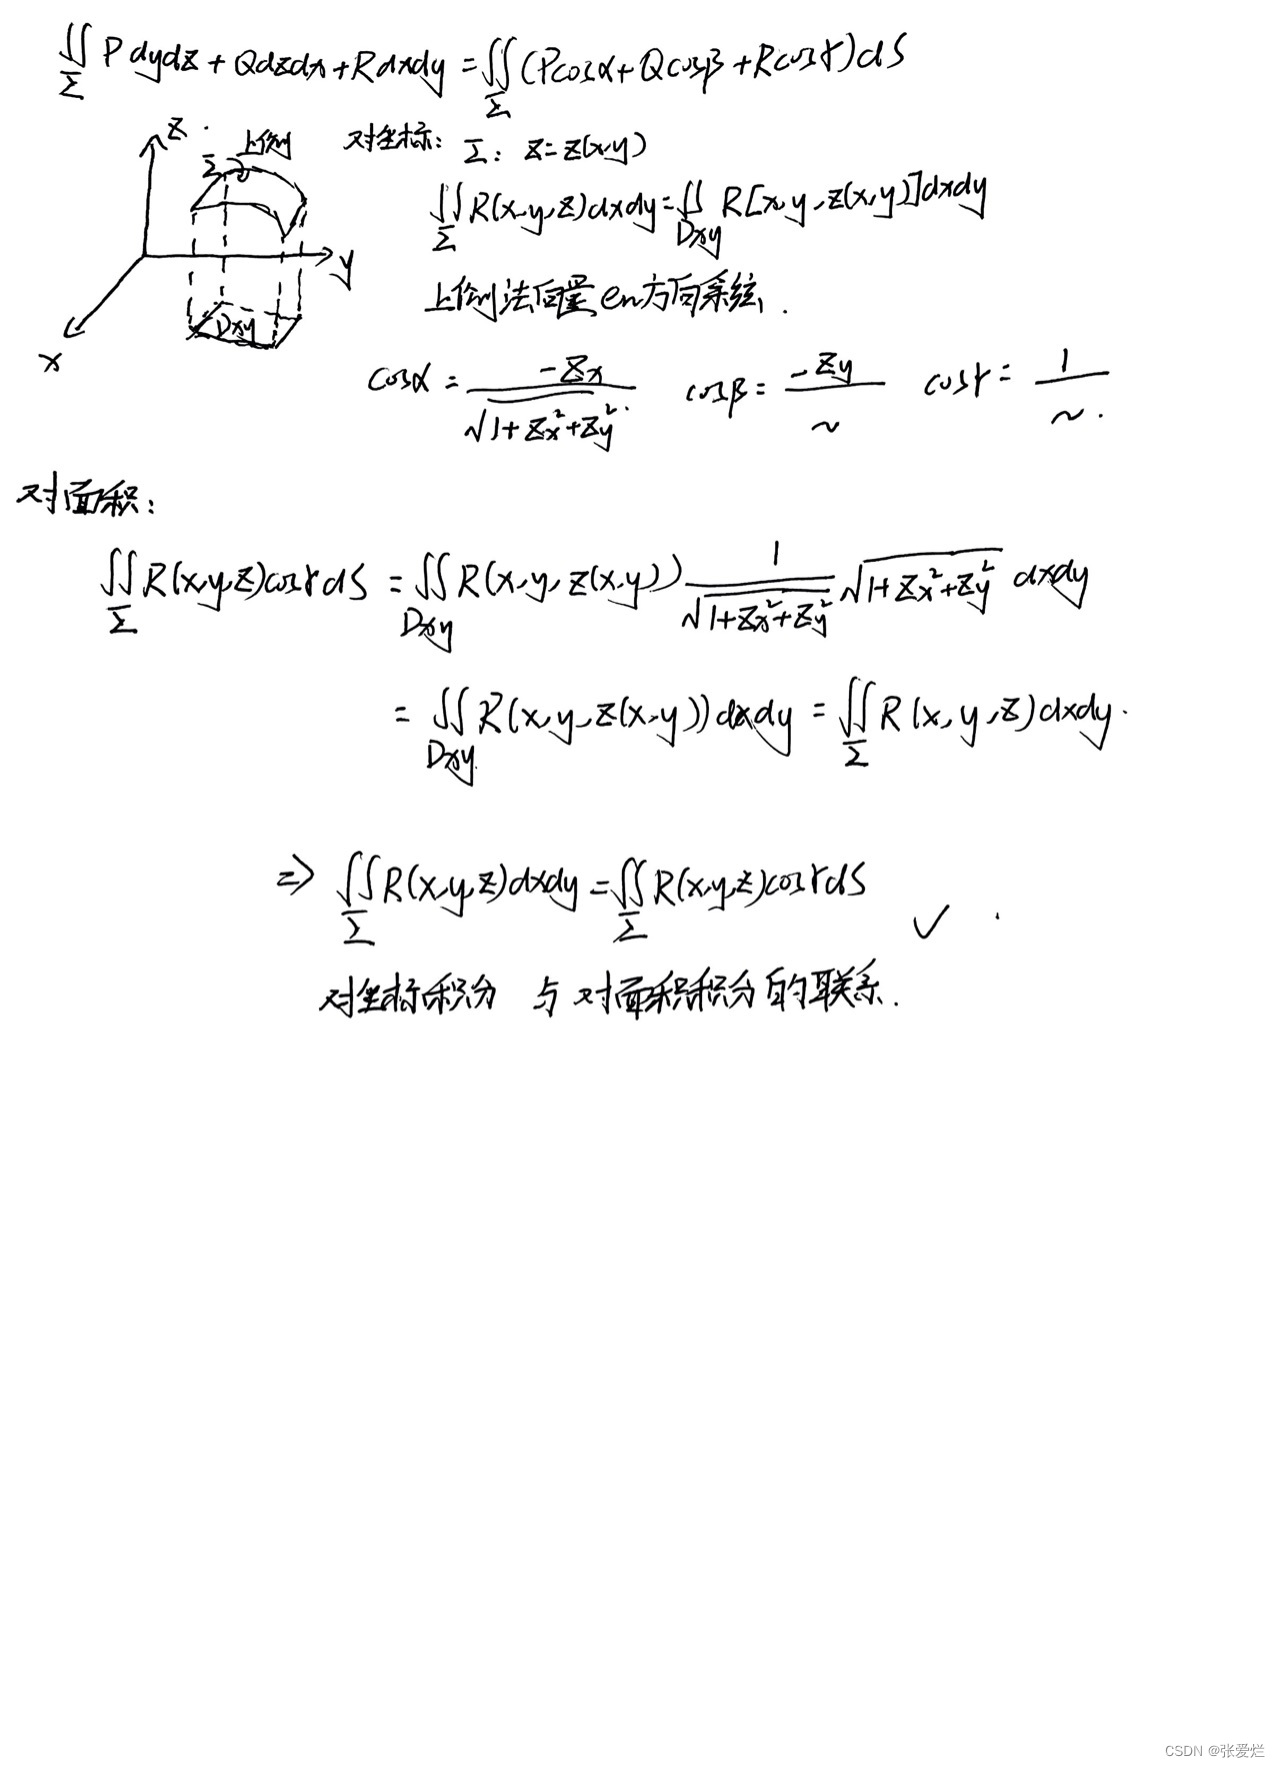 ∬_Σ Pdydz+Qdzdx+Rdxdy=∬_Σ (Pcosα+Qcosβ+Rcosγ)dS
z
Σ 上侧
y
x
Dxy
对坐标: Σ: z=z(x,y)
∬_Σ R(x,y,z)dxdy=∬_Dxy R[x,y,z(x,y)]dxdy
上侧法向量en方向系统.
cosα = -Zx/√(1+Zx²+Zy²) cosβ = -Zy/~ cosγ = 1/~.
对面积:
∬_Σ R(x,y,z)cosγdS = ∬_Dxy R(x,y,z(x,y)) 1/√(1+Zx²+Zy²) √(1+Zx²+Zy²) dxdy
= ∬_Dxy R(x,y,z(x,y))dxdy = ∬_Σ R(x,y,z)dxdy.
=> ∬_Σ R(x,y,z)dxdy=∬_Σ R(x,y,z)cosγdS ✓
对坐标积分 与对面积积分的联系.
CSDN @张爱烂